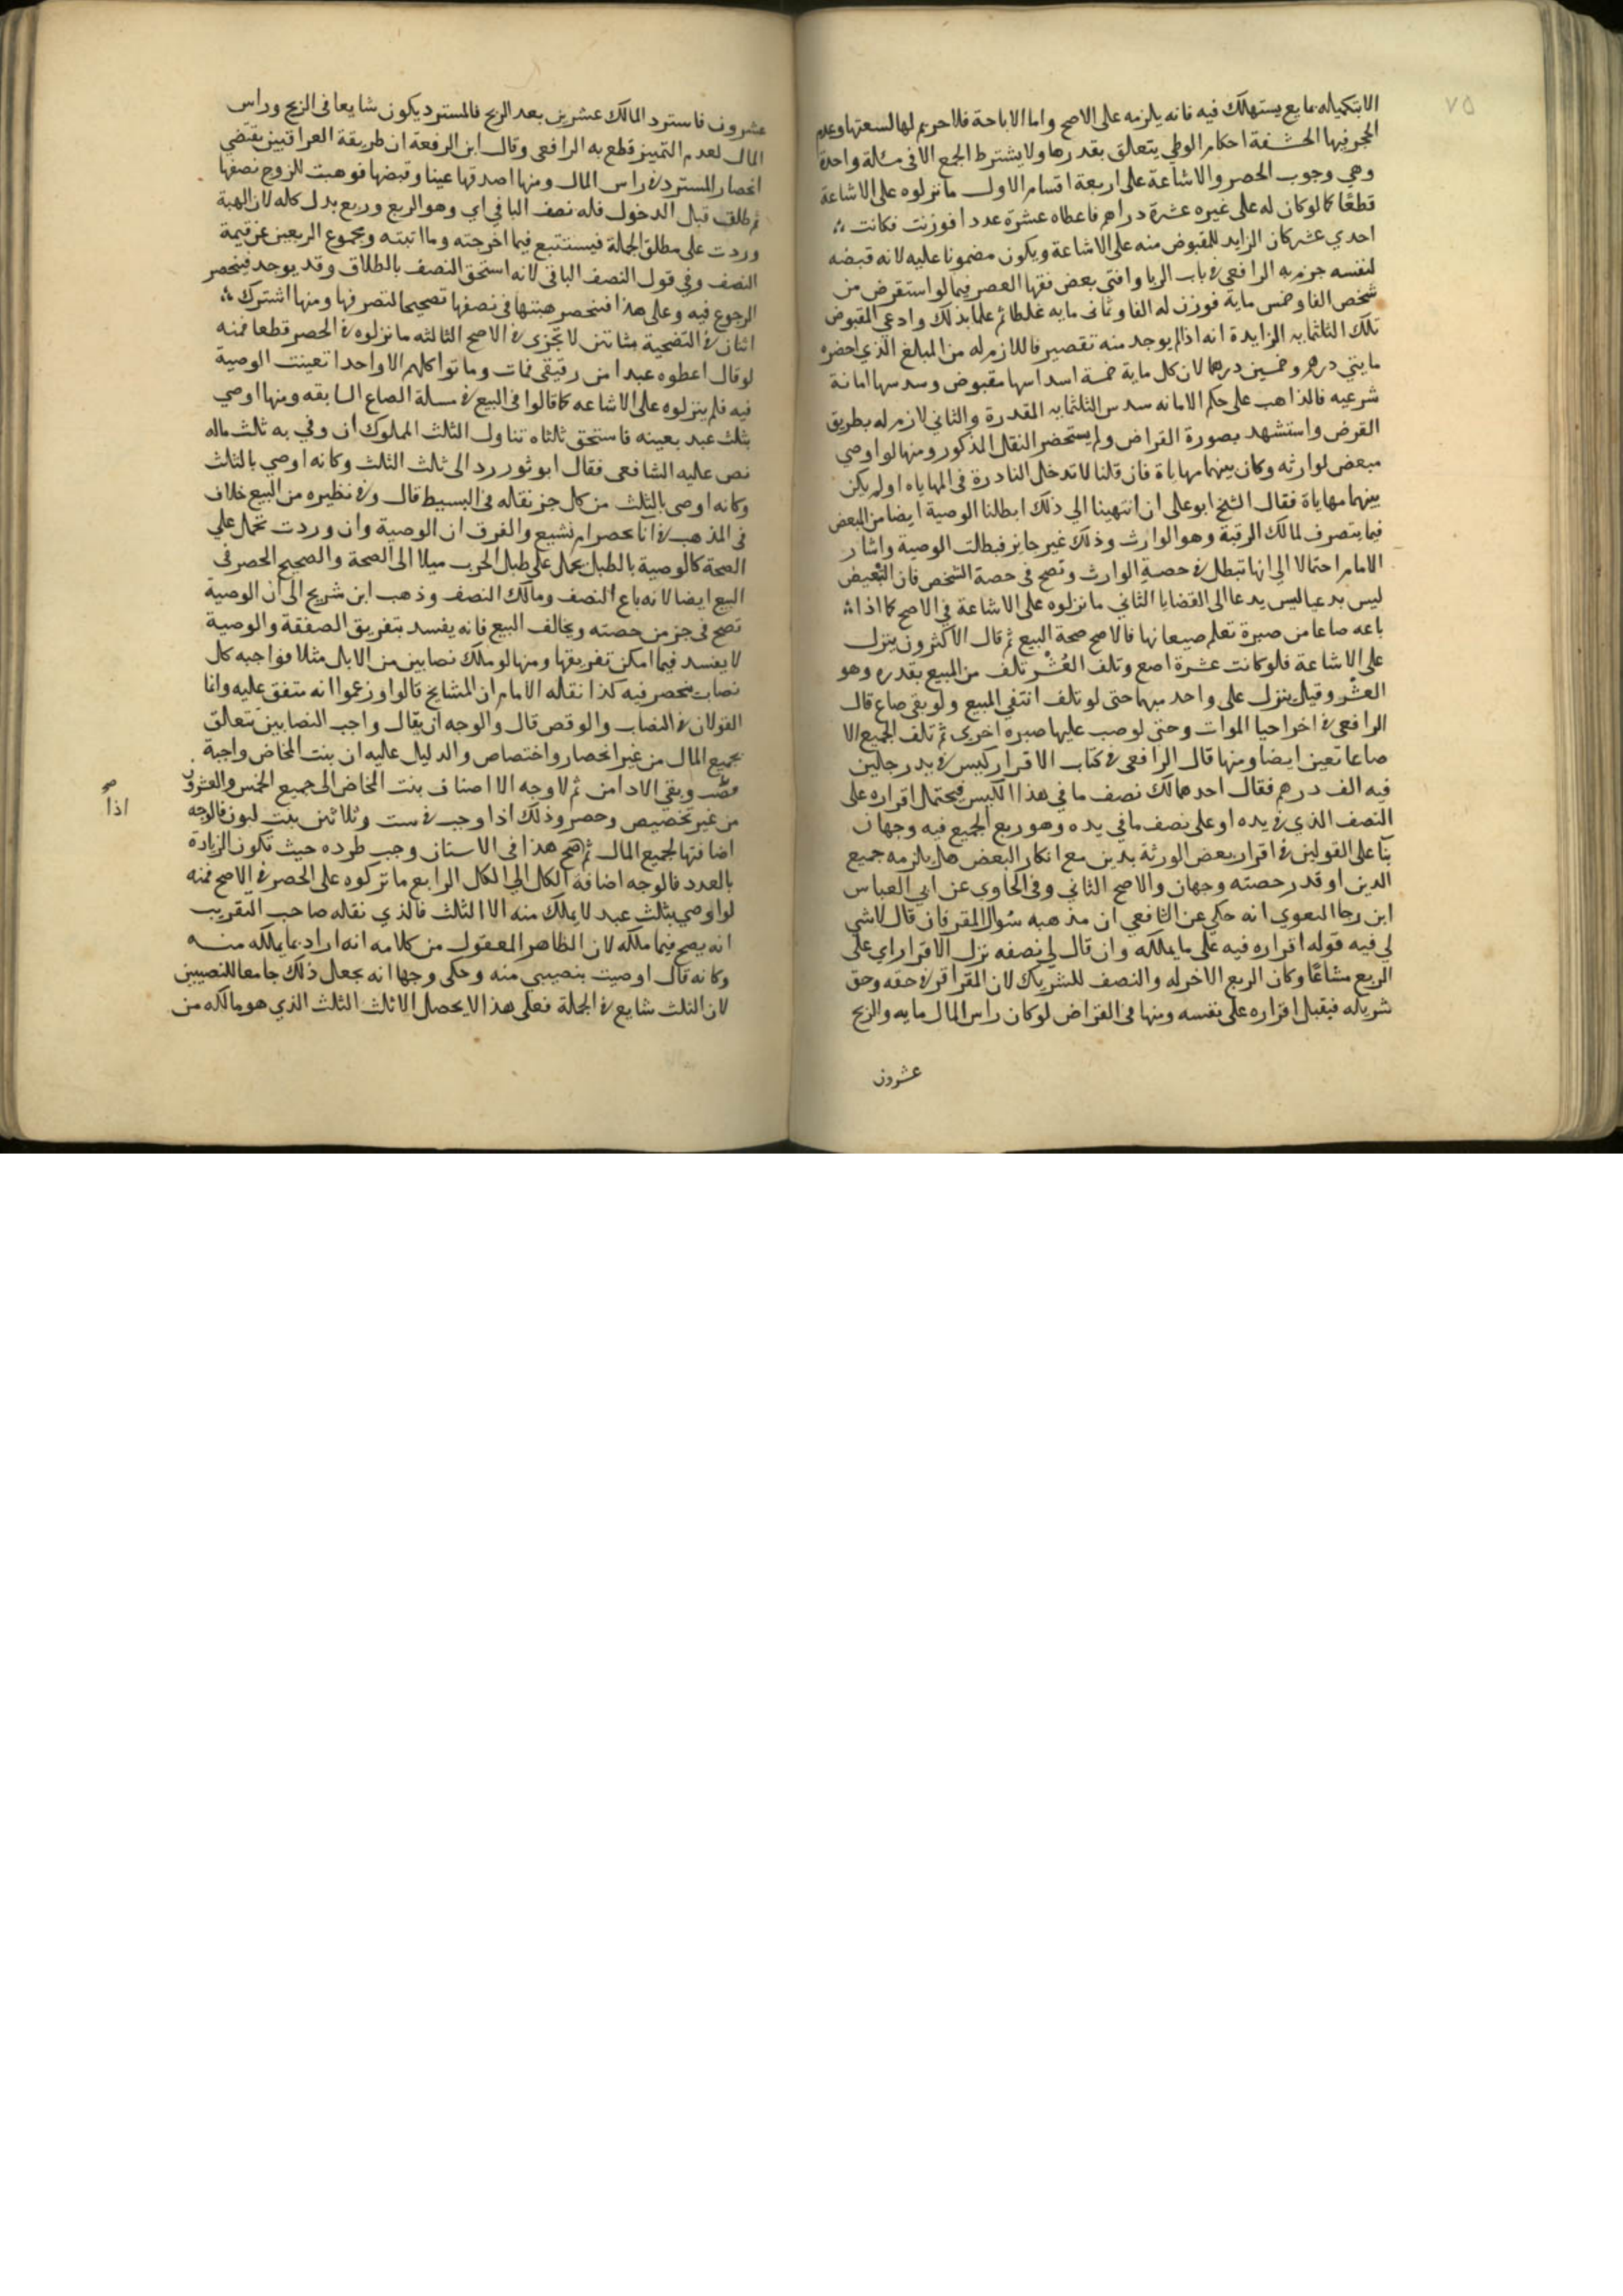 ٧٥
الابتكياله مايع يستهلك فيه فانه يلزمه على الاصح واما الاباحة فلا حريم لها لسعتها وعدم
الحجر فيها الحشفة احكام الوطي يتعلق بقدرها ولا يشترط الجمع الا في مسلة واحدة
وهي وجوب الحصر والاشاعة على اربعة اقسام الاول ما نزلوه على الاشاعة
قطعا كما لو كان له على غيره عشرة دراهم فاعطاه عشرة عددا فوزنت فكانت
احدي عشر كان الزايد للمقبوض منه على الاشاعة ويكون مضمونا عليه لانه قبضه
لنفسه جزم به الرافعي في باب الربا وافتى بعض فقها العصر فيما لو استقرض من
شخص الفا وخمس ماية فوزن له الفا وثماني مايه غلطا ثم علما بذلك وادعي المقبوض
تلك الثلثمايه الزايدة انه اذا لم يوجد منه تقصير فاللازم له من المبلغ الذي احضره
مايتي درهم وخمسين درهما لان كل ماية خمسة اسداسها مقبوض وسدسها امانة
شرعيه فالذاهب على حكم الامانه سدس الثلثمايه المقدرة والثاني لازم له بطريق
القرض واستشهد بصورة القراض ولم يستحضر النقل المذكور ومنها لو اوصي
مبعض لوارثه وكان بينهما مهاياة فان قلنا لا تدخل النادرة في المهاياه او لم يكن
بينهما مهاياة فقال الشيخ ابو علي ان انتهينا الي ذلك ابطلنا الوصية ايضا من البعض
فيما يتصرف لمالك الرقبة وهو الوارث وذلك غير جايز فبطلت الوصية واشار
الامام احتمالا الي انها تبطل في حصة الوارث وتصح في حصة الشخص فان التبعيض
ليس بدعيا ليس يدعا الى القضايا الثاني ما نزلوه على الاشاعة في الاصح كما اذا
باعه صاعا من صبرة تعلم صيعانها فالاصح صحة البيع ثم قال الاكثرون ينزل
على الاشاعة فلو كانت عشرة اصع وتلف العشر تلف من المبيع بقدره وهو
العشر وقيل ينزل على واحد مبهما حتى لو تلف انتفي المبيع ولو بقي صاع قال
الرافعي في اخر احيا الموات وحتى لو صب عليها صبره اخري ثم تلف الجميع الا
صاعا تعين ايضا ومنها قال الرافعي في كتاب الاقرار كيس في يد رجلين
فيه الف درهم فقال احدهما لك نصف ما في هذا الكيس فيحتمل اقراره على
النصف الذي في يده او على نصف ما في يده وهو ربع الجميع فيه وجهان
بنا على القولين في اقرار بعض الورثة بدين مع انكار البعض هل يلزمه جميع
الدين او قدر حصته وجهان والاصح الثاني وفي الحاوي عن ابي العباس
ابن رجا البصوي انه حكي عن الشافعي ان مذهبه سوال المقر فان قال لا شي
لي فيه قوله اقراره فيه على ما يملكه وان قال لي نصفه نزل الاقرار اي على
الربع مشاعا وكان الربع الاخر له والنصف للشريك لان المقر اقر في حقه وحق
شريكه فيقبل اقراره على نفسه ومنها في القراض لو كان راس المال مايه والربح
عشرون
عشرون فاسترد المالك عشرين بعد الربح فالمسترد يكون شايعا في الربح وراس
المال لعدم التمييز قطع به الرافعي وقال ابن الرفعة ان طريقة العراقيين يقتضي
انحصار المسترد في راس المال ومنها اصدقها عينا وقبضها فوهبت للزوج نصفها
ثم طلق قبل الدخول فله نصف الباقي اي وهو الربع وربع بدل كله لان الهبة
وردت على مطلق الجملة فيستتبع فيما اخرجته وما اثبتته ومجموع الربعين عن قيمة
النصف وفي قول النصف الباقي لانه استحق النصف بالطلاق وقد يوجد فينحصر
الرجوع فيه وعلى هذا فتنحصر هبتها في نصفها تصحيحا لتصرفها ومنها اشترك
اثنان في التضحية بشاتين لا تجزي في الاصح الثالثه ما نزلوه في الحصر قطعا فمنه
لو قال اعطوه عبدا من رقيقي فمات وماتوا كلهم الا واحدا تعينت الوصية
فيه فلم ينزلوه على الاشاعه كما قالوا في البيع في مسلة الصاع السابقه ومنها اوصي
بثلث عبد بعينه فاستحق ثلثاه تناول الثلث المملوك ان وفي به ثلث ماله
نص عليه الشافعي فقال ابو ثور رد الى ثلث الثلث وكانه اوصي بالثلث
وكانه اوصى بالثلث من كل جز نقله في البسيط قال وفي نظيره من البيع خلاف
في المذهب في انا نحصر ام نشيع والفرق ان الوصية وان وردت تحمل علي
الصحة كالوصية بالطبل يحمل على طبل الحرب ميلا الى الصحة والصحيح الحصر في
البيع ايضا لانه باع النصف ومالك النصف وذهب ابن شريح الى ان الوصية
تصح في جز من حصته ويخالف البيع فانه يفسد بتفريق الصفقة والوصية
لا يفسد فيما امكن تفريقها ومنها لو ملك نصابين من الابل مثلا فواجبه كل
نصاب ينحصر فيه كذا نقله الامام ان المشايخ قالوا وزعموا انه متفق عليه وانما
القولان في النصاب والوقص قال والوجه ان يقال واجب النصابين يتعلق
بجميع المال من غير انحصار واختصاص والدليل عليه ان بنت المخاض واجبة
ويبقي الاد امن ثم لا وجه الا اضاف بنت المخاض الى جميع الخمس والعشرون
من غير تخصيص وحصر وذلك اذا وجب في ست وثلاثين بنت لبون فالوجه
اضافتها لجميع المال ثم صح هذا في الاسنان وجب طرده حيث تكون الزيادة
بالعدد فالوجه اضافة الكل الي الكل الرابع ما تركوه على الحصر في الاصح فمنه
لو اوصي بثلث عبد لا يملك منه الا الثلث فالذي نقله صاحب التقريب
انه يصح فيما ملكه لان الظاهر المعقول من كلامه انه اراد بما يملكه منه
وكانه قال اوصيت بنصيبي منه وحكى وجها انه يجعل ذلك جامعا للنصيبين
لان الثلث شايع في الجملة فعلى هذا لا يحصل الا ثلث الثلث الذي هو مالكه من
صح
اذا